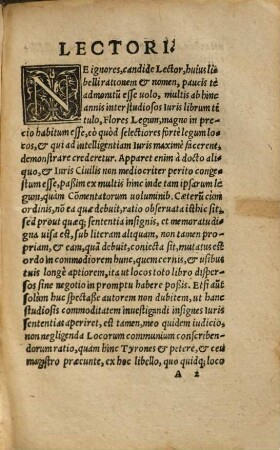 LECTORI.
NE ignores, candide Lector, huius li
belli rationem & nomen, paucis tè
admonitũ esse uolo, multis ab hinc
annis inter studiosos Iuris librum ti
tulo, Flores Legum, magno in pre
cio habitum esse, eò quòd selectiores ferè legum lo=
cos, & qui ad intelligentiam Iuris maximè facerent,
demonstrare crederetur. Apparet enim à docto ali=
quo, & Iuris Ciuilis non mediocriter perito conge=
stum esse, paßim ex multis hinc inde tam ipsarum le
gum, quàm Cõmentatorum uoluminib. Cæterũ cùm
ordinis, nõ ea quæ debuit, ratio obseruata isthic sit,
sed prout quæq; sententia insignis, et memoratu di=
gna uisa est, sub literam aliquam, non tamen pro=
priam, & eam, quã debuit, coniecta sit, mutatus est
ordo in commodiorem hunc, quem cernis, & usibus
tuis longè aptiorem, ita ut locos toto libro disper=
sos sine negotio in promptu habere poßis. Etsi aũt
solùm huc spectasse autorem non dubitem, ut hanc
studiosis commoditatem inuestigandi insignes Iuris
sententias aperiret, est tamen, meo quidem iudicio,
non negligenda Locorum communium conscriben=
dorum ratio, quam hinc Tyrones & petere, & ceu
magistro præeunte, ex hoc libello, quo quidq; loco
A 2